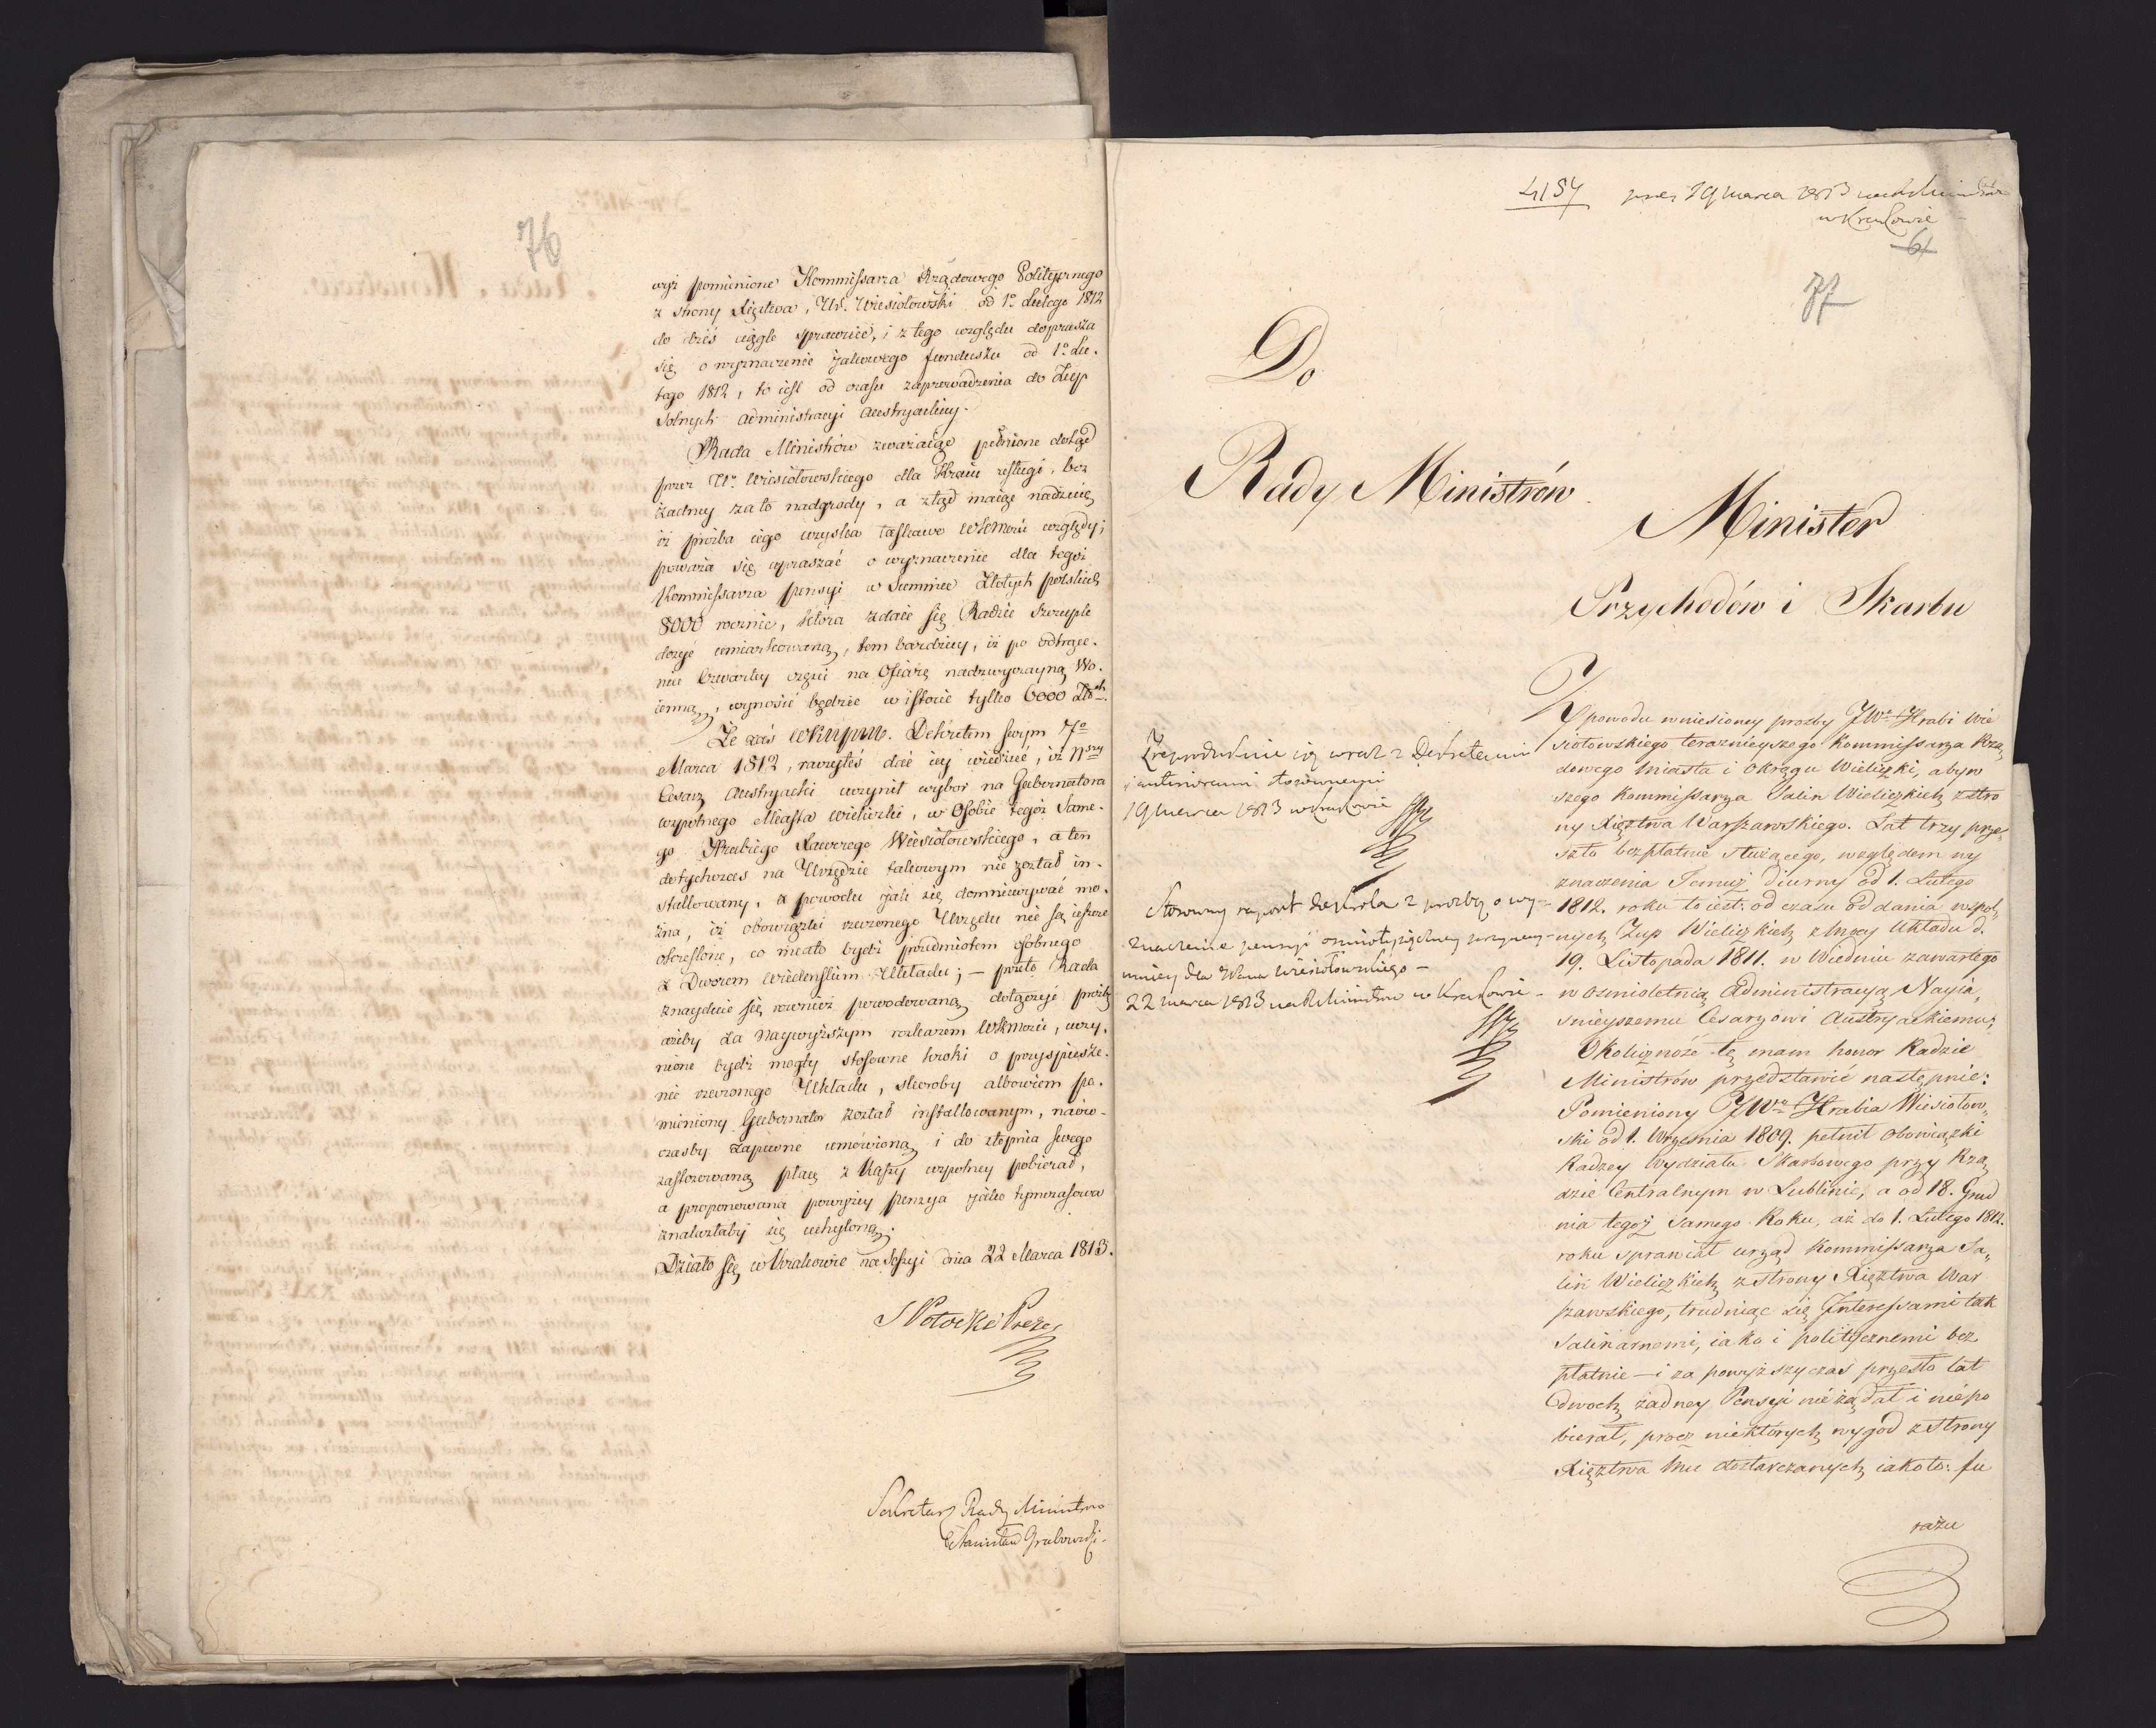 76
wyż pomienione Kommissarza Rządowego Politycznego
z strony Xięstwa, Ur. Wiesiołowski od 1º Lutego 1812
do dziś ciągle sprawuie, i z tego względu doprasza
się o wyznaczenie jakowego funduszu od 1º Lu-
tego 1812, to iest od czasu zaprowadzenia do Żup
Solnych administracyi Austryackiey.
Rada Ministrów zważaiąc pełnione dotąd
przez Ur. Wiesiołowskiego dla Kraiu usługi, bez
żadney za to nadgrody, a ztąd maiąc nadzieię
iż prozba iego uzyska łaskawe WKMości względy;
poważa się upraszać o wyznaczenie dla tegoż
Kommissarza pensyi w Summie Złotych polskich
8000 rocznie, która zdaie się Radzie szczupłe
dosyć umiarkowaną, tem bardziey, iż po odtrące-
niu czwartey części na Ofiarę nadzwyczayną Wo-
ienną, wynosić będzie w istocie tylko 6000 Złotch.
Że zaś WKMPMć. Dekretem swym 7º
Marca 1812, raczyłeś dać iey wiedzieć, iż Nszy
Cesarz Austryacki uczynił wybor na Gubernatora
wspolnego Miasta Wieliczki, w Osobie tegoż Same-
go Hrabiego Xawerego Wiesiołowskiego, a ten
dotychczas na Urzędzie takowym nie został in-
stallowany, z powodu jak się domniemywać mo-
żna, iż obowiązki rzeczonego Urzędu nie są ieszcze
określone, co miało bydź przedmiotem osobnego
z Dworem Wiedenskim Układu; - przeto Rada
znayduie się rownież powodowaną dołączyć prozbę
ażeby za Naywyższym rozkazem WKMości, uczy-
nione bydź mogły stosowne kroki o przyspiesze-
nie rzeczonego Układu, skoroby albowiem po-
mieniony Gubernator został installowanym, naów-
czasby zapewne umówioną i do stopnia swego
zastosowaną płacę z Kassy wspolney pobierał,
a proponowana powyżey pensya jako tymczasowa
znalazłaby się uchyloną.
Działo się w Krakowie na Sessyi dnia 22 Marca 1813.
S Potocki Prezes
Sekretarz Rady Ministrów
Stanisław Grabowski
4154 prez 19 marca 1813 na R Ministrów
w Krakowie
61
77
Do
Rady Ministrów
Minister
Przychodów i Skarbu
Z powodu wniesioney prozby JWo Hrabi Wie
siołowskiego teraznieyszego Kommissarza Rzą„
dowego Miasta i Okręgu Wieliczki, a byw
szego Kommissarza Salin Wielickich z stro
ny Xięztwa Warszawskiego. Lat trzy prze„
szło bezpłatnie służącego, względem wy
znaczenia Jemuż Diurny od 1. Lutego
1812. roku to iest: od czasu oddania wspol„
nych Żup Wielickich z mocy Układu d.
19. Listopada 1811. w Wiedniu zawartego
w osmioletnią Administracyą Nayia„
snieyszemu Cesarzowi Austryackiemu;
Okoliczność tę mam honor Radzie
Ministrów przedstawić następnie:
Pomieniony JWy Hrabia Wiesiołow„
ski od 1. Września 1809. pełnił obowiązki
Radzcy Wydziału Skarbowego przy Rzą„
dzie Centralnym w Lublinie, a od 18. Grud
nia tegoż samego Roku, aż do 1. Lutego 1812.
roku sprawiał urząd Kommissarza Sa„
lin Wielickich z strony Xięztwa War
szawskiego, trudniąc się Interessami tak
Salinarnemi, iako i politycznemi bez
płatnie – i za powyższy czas przeszło lat
dwoch, żadney Pensyi nie żądał i nie po
bierał, procz niektórych wygod z strony
Xięztwa mu dostarczanych iako to: fu
rażu
Zreprodukuie się wraz z Dekretami
i anterioribus stosownemi
19 marca 1813 w Krakowie
Stosowny raport do Króla z prozbą o wy-
znaczenie pensyi osmiotysięczney przynay-
mniey dla JPana Wiesiołowskiego –
22 marca 1813 na R Ministrów w Krakowie –